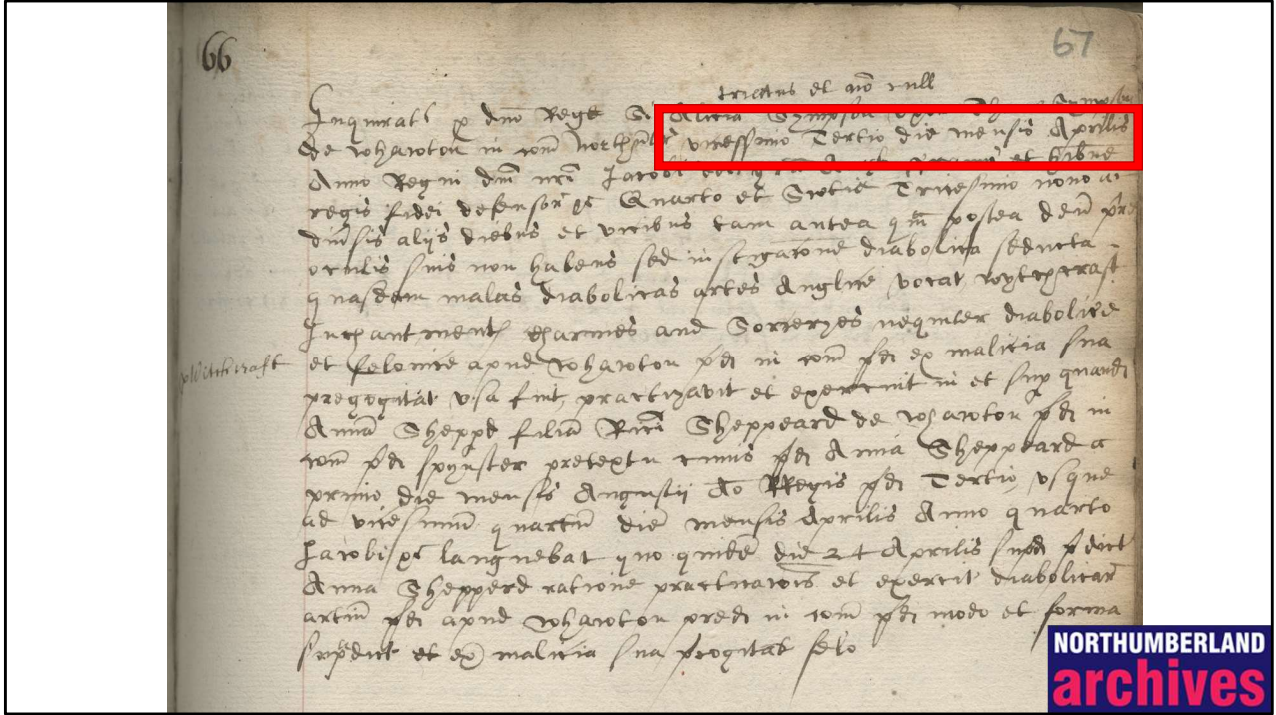 66
67
trietus et no null
Inquirat p dno Rege Si Alicia Sympson
de Whawton in com vicessimo Tertio die mensis Aprilis
Anno Regni dm nri Jacobi et
regis fidei defensor &c Quarto et Scotie Tricesimo nono ac
diusis alijs diebus et vicibus tam antea qm postea deu pre
oculis suis non habens sed instigacone diabolica seducta
quasdam malas diabolicas artes Anglice vocat wytchcraft
Inchantments charmes and Sorceryes nequiter diabolice
et felonice apud Whawton pd in com pd ex malicia sua
Witchcraft
precogitat vsa fuit, practizavit et exercuit in et sup quand
Anna Shepped filia Rici Sheppeard de Whawton pd in
com pd spynster pretextu cuius pd Anna Sheppeard a
primo die mensis Augustij Ao RRegis pd Tertio, vsque
ad vicesimum quartu die mensis Aprilis Anno quarto
Jacobi &c languebat quo quide die 24 Aprilis supd pdict
Anna Shepperd ratione practicacois et exercit diabolicar
artiu pd apud Whawton pred in com pd modo et forma
supdict et ex malicia sua pcogitat felo
NORTHUMBERLAND
archives